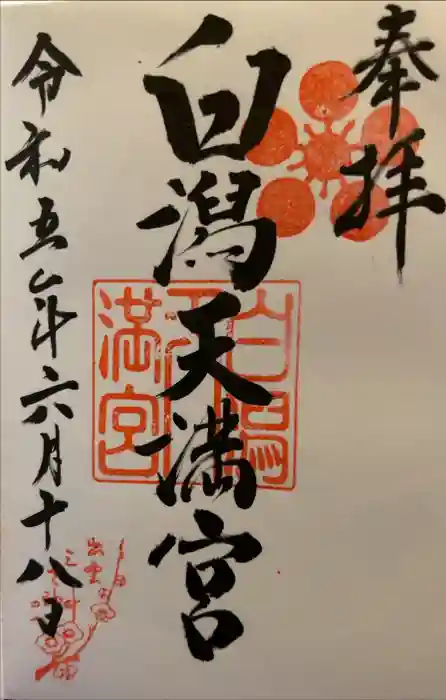 奉拝
白潟天満宮
令和五年六月十八日
白潟
天
満宮
出雲